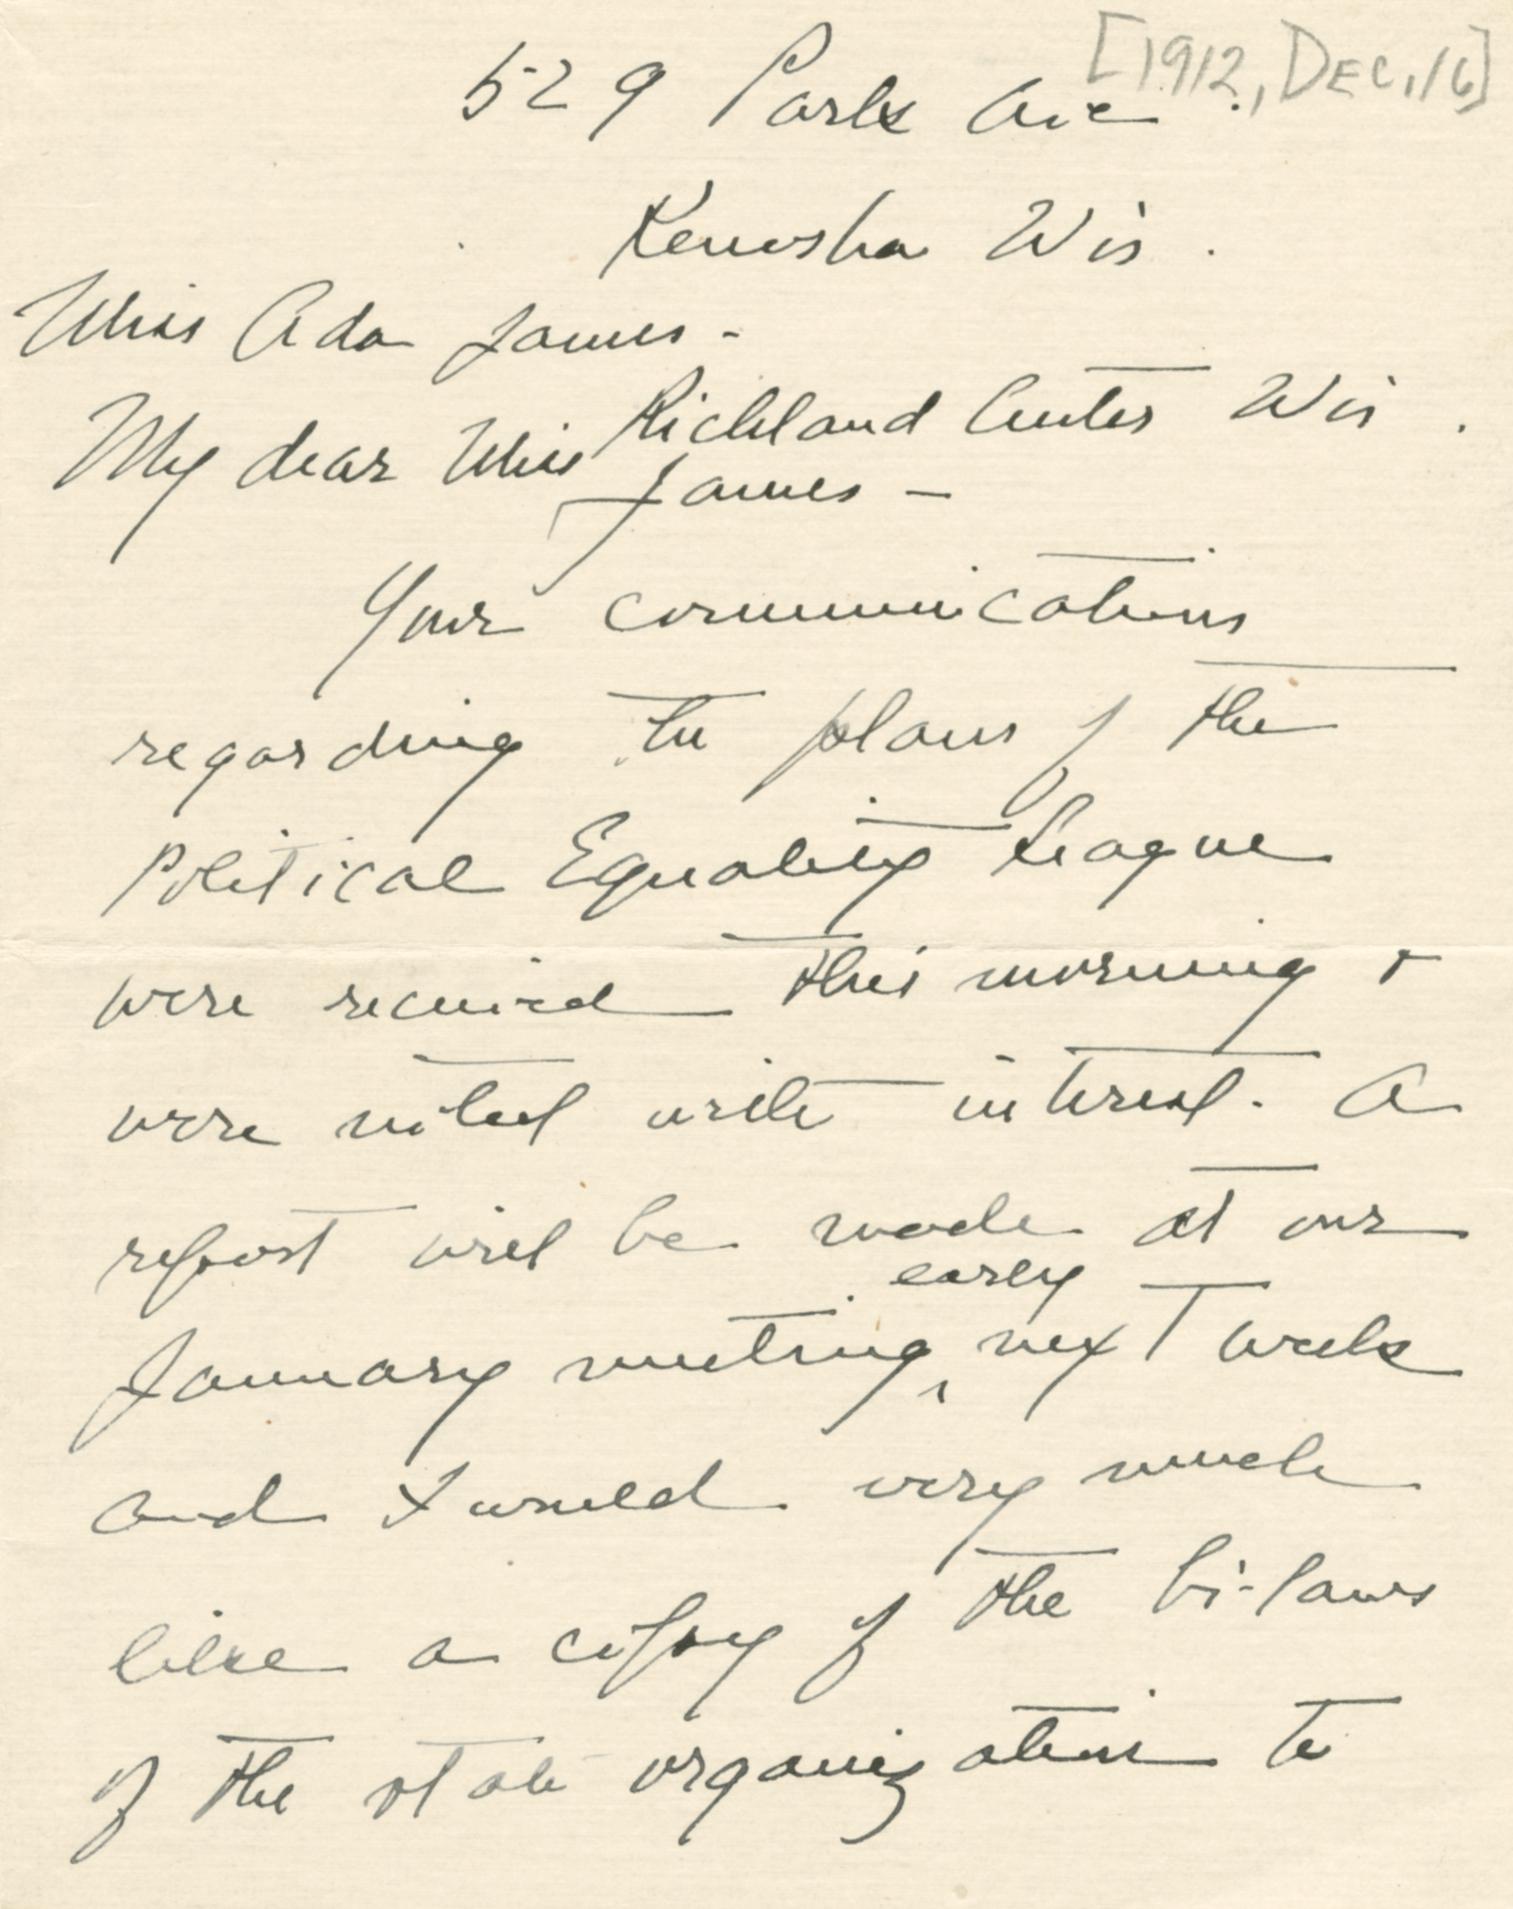 [1912, Dec, 16]
529 Park Ave.
Kenosha Wis.
Miss Ada James -
Richland Center Wis.
My dear Miss James -
Your communications
regarding the plans of the
Political Equality League
were received this morning +
were noted with interest. A
report will be made at our
early
January meeting ‸ next week
and I would very much
like a copy of the bi-laws
of the state organization to